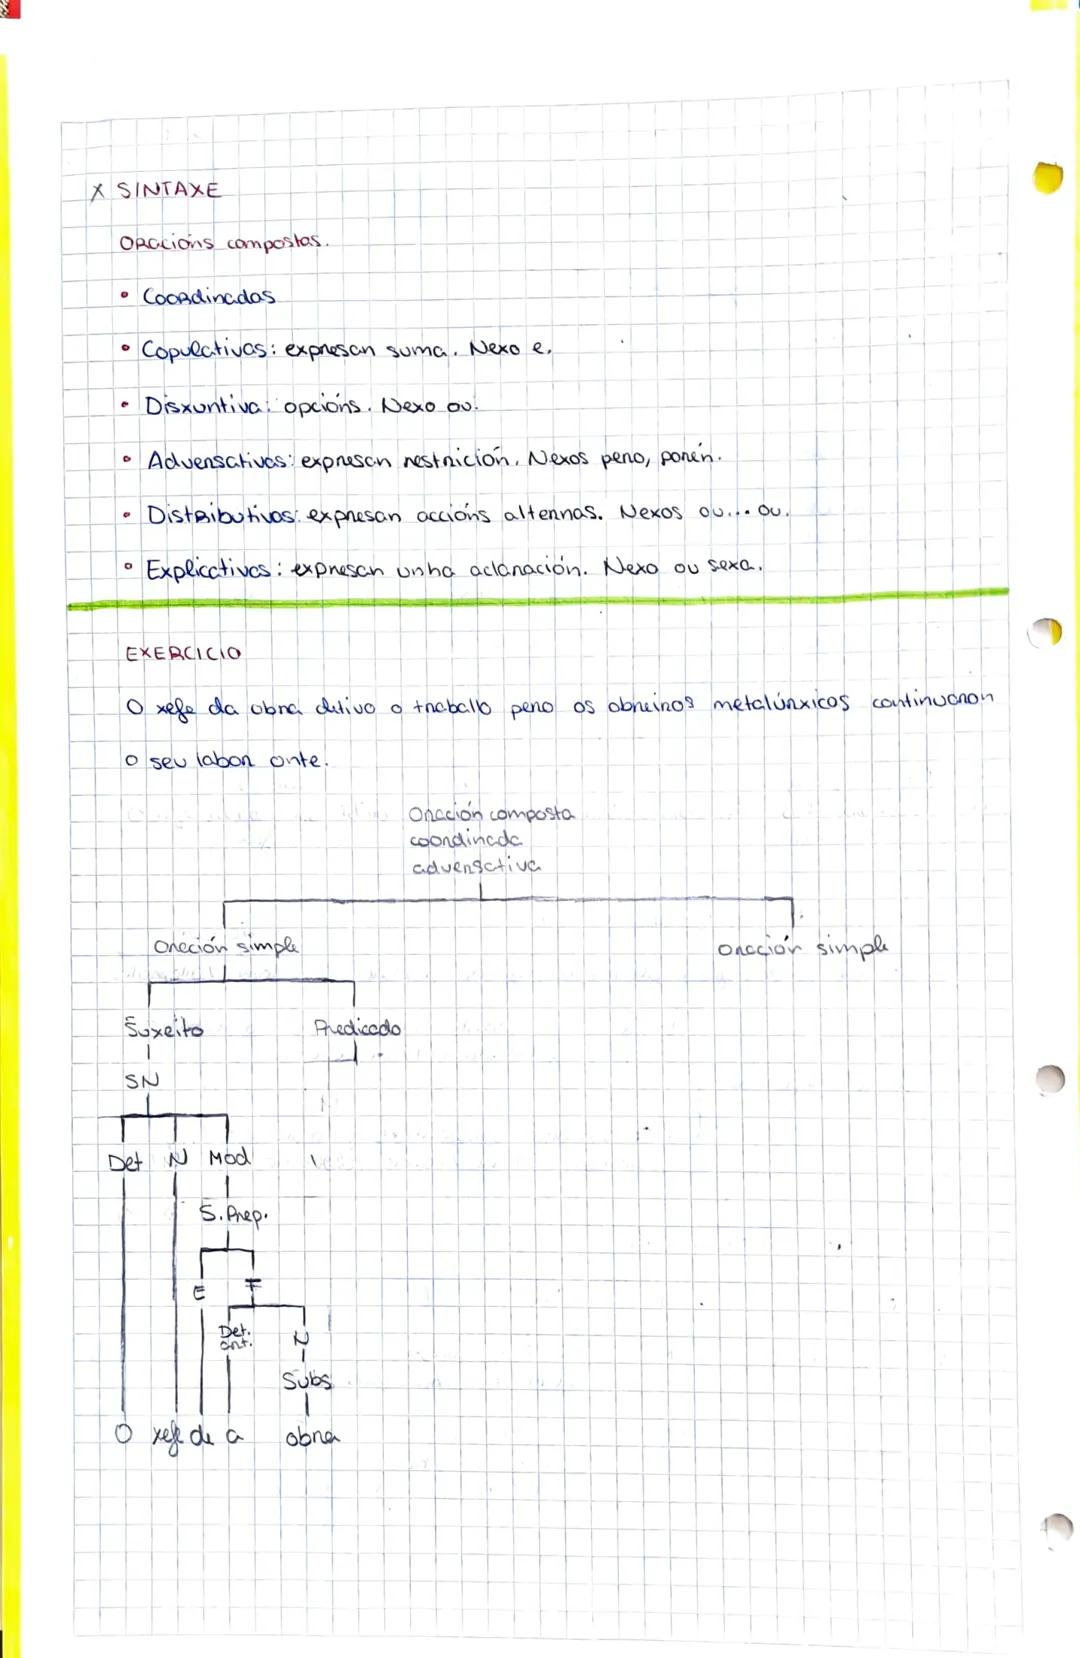 X SINTAXE
Oracións compostas.
• Coordinadas
• Copulativas: expresan suma. Nexo e.
• Disxuntiva: opcións. Nexo ou.
• Adversativas: expresan restrición. Nexos pero, porén.
• Distributivas: expresan accións alternas. Nexos ou... ou.
• Explicativas: expresan unha aclaración. Nexo ou sexa.
EXERCICIO
O xefe da obra detivo o traballo pero os obreiros metalúrxicos continuaron
o seu labor onte.
Oración composta
coordinada
adversativa
Oración simple oración simple
Suxeito Predicado
SN
Det N Mod
S. Prep.
E T
Det. ant. N
Subs
O xefe de a obra